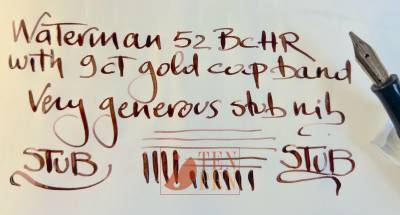 Waterman 52 BCHR
with 9ct gold cap band
Very generous stub nib
STUB
STUB
TEN